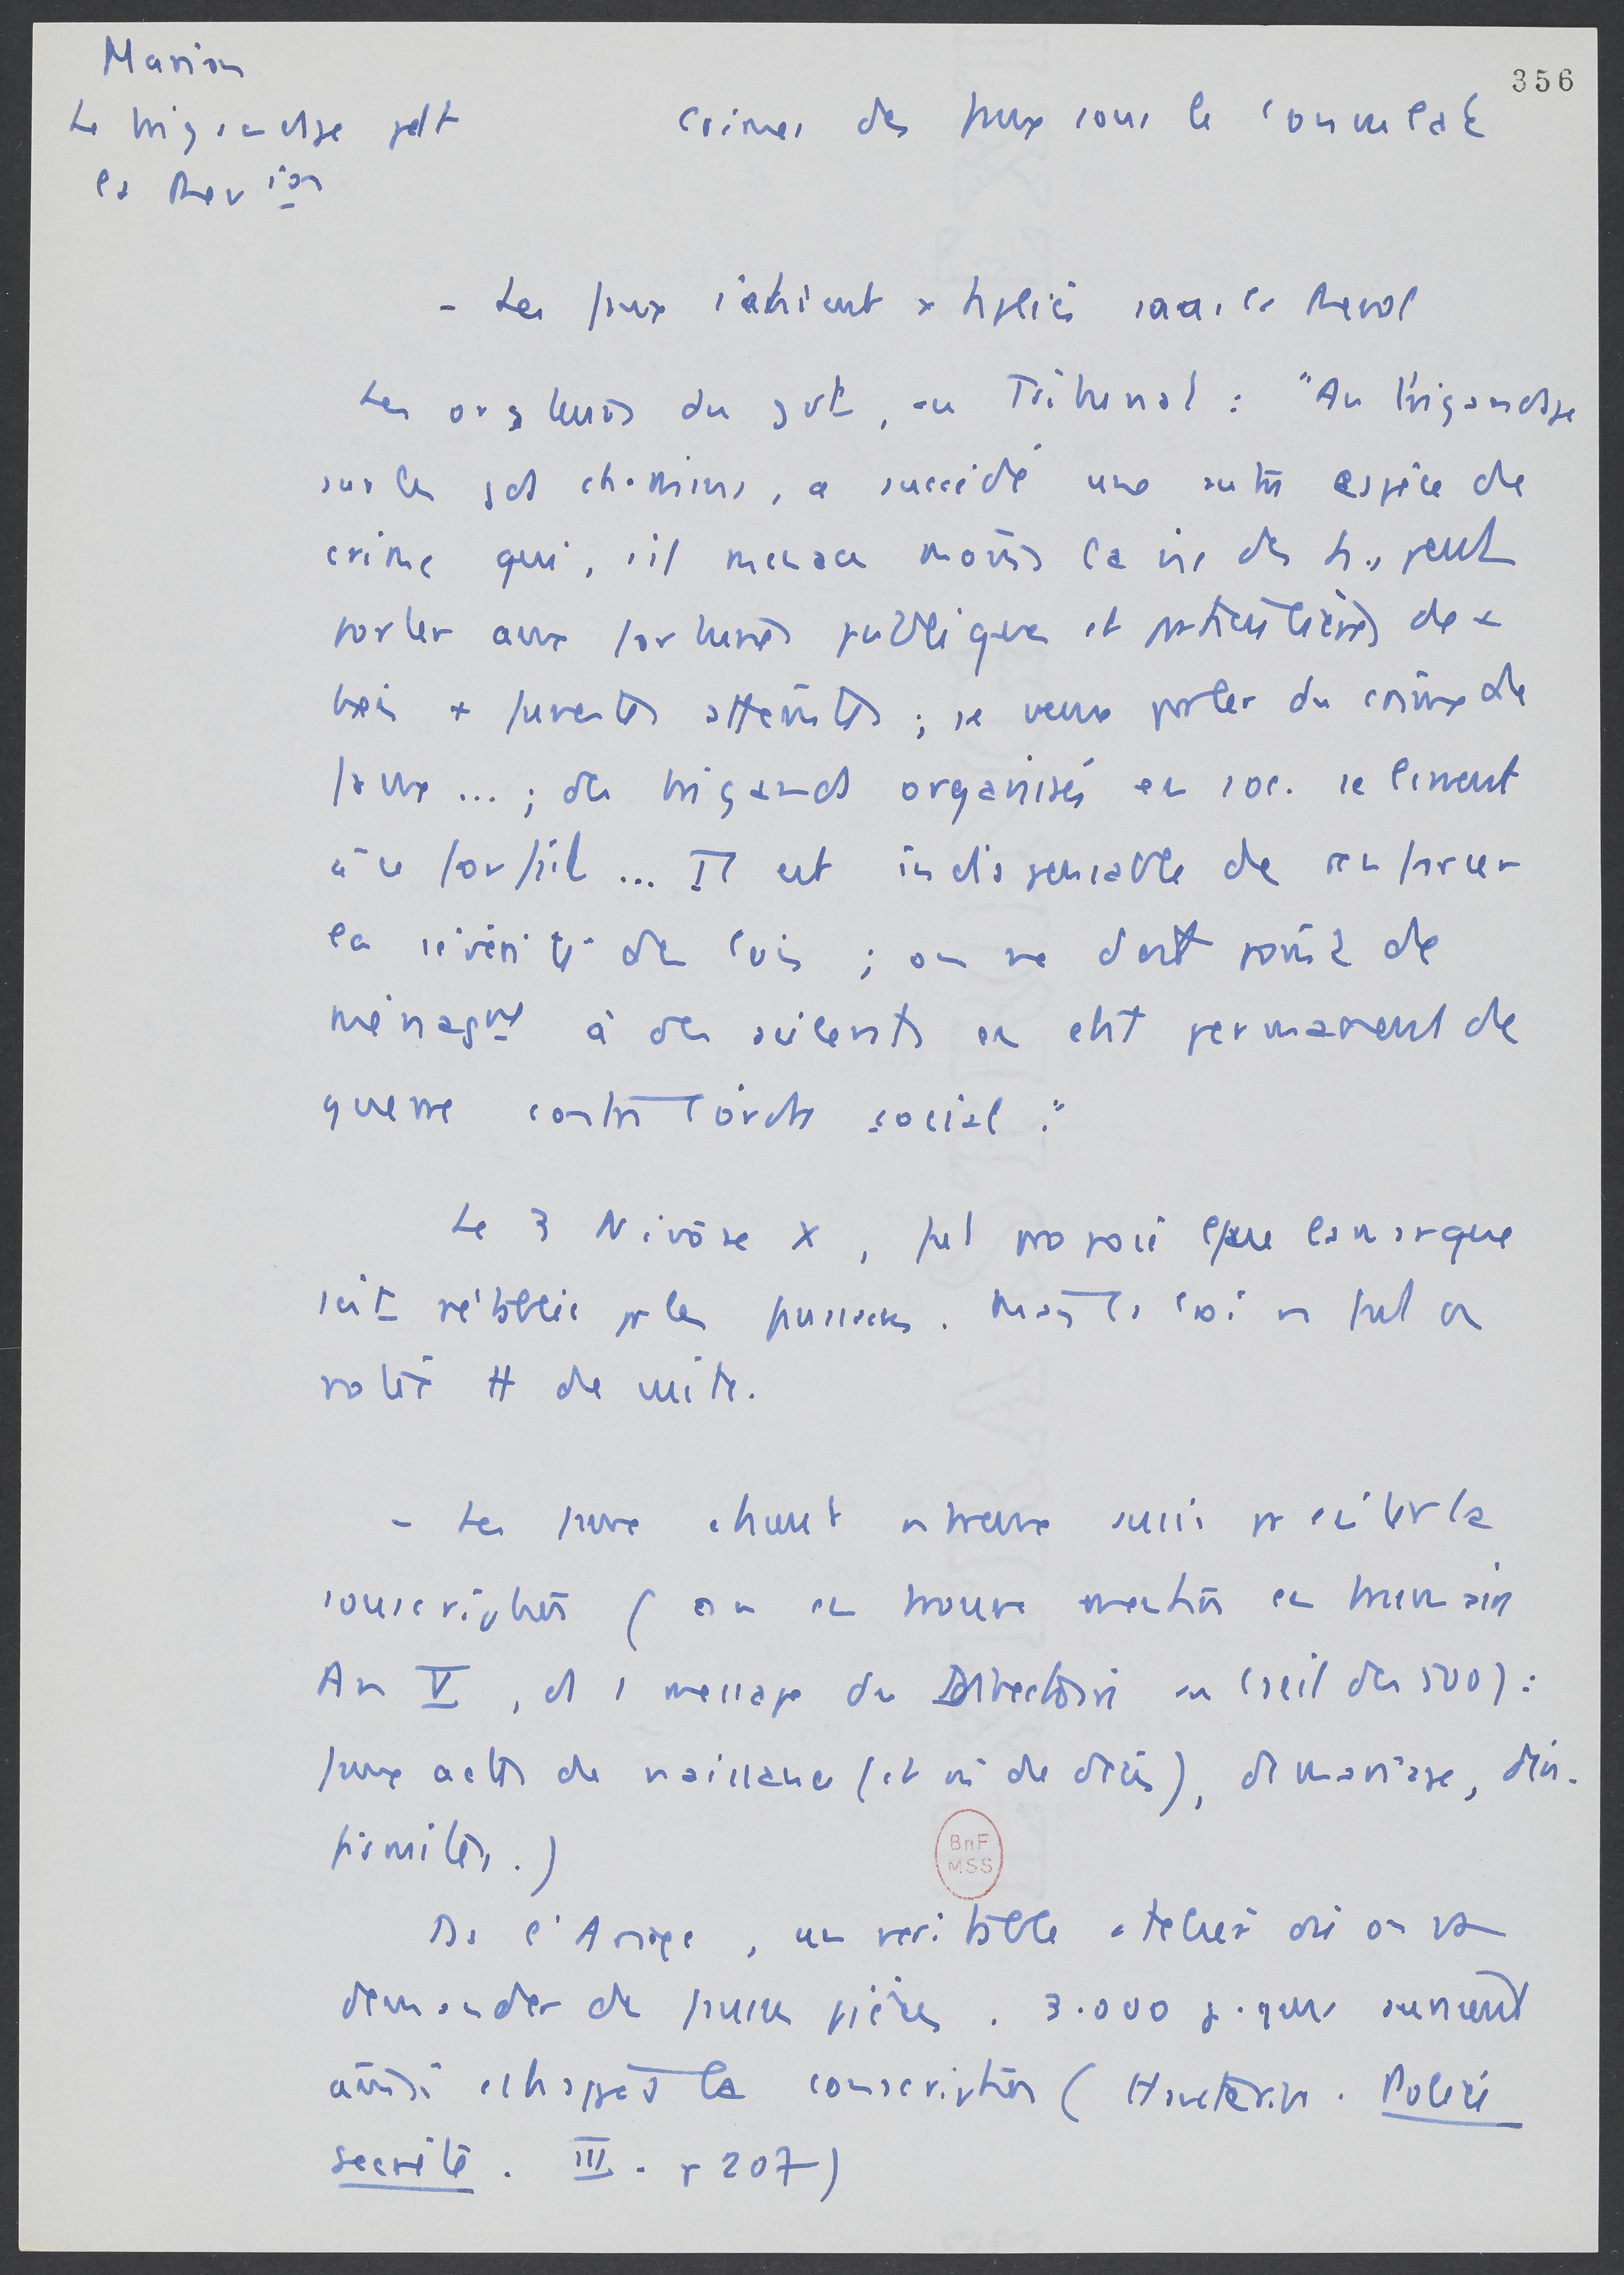 356
Marion
Le brigandage pdt
la Rev ion
Crimes des faux sous le Consulat
- Les faux s'étaient x tipliés sous la Revol
Les orateurs du gvt, au Tribunat : "Au brigandage
sur les gds chemins, a succédé une autre espèce de
crime qui, s'il menace moins la vie des h., peut
porter aux fortunes publiques et particulières de
bien + funestes atteintes ; je veux parler du crime de
faux ... ; des brigands organisés en soc. se livrent
à ce forfait ... Il est indispensable de renforcer
la sévérité des lois ; on ne doit point de
ménagmt à des scélérats en état permanent de
guerre contre l'ordre social."
Le 3 Nivôse X, fut proposé que la marque
soit rétablie pr les faussaires. Mais la loi ne fut
votée tt de suite.
- Les faux étaient nbreux aussi pr éviter la
conscription (on en trouve mention en brumaire
An V, ds 1 message du Directoire au Cseil des 500) :
faux actes de naissance (et de décès), de mariage,
Ds l'Ariège, un véritable atelier où on va
demander de fausses pièces. 3.000 auraient
ainsi échappé à la conscription (Hauterive. Police
secrète. III. p 207)
BnF
MSS